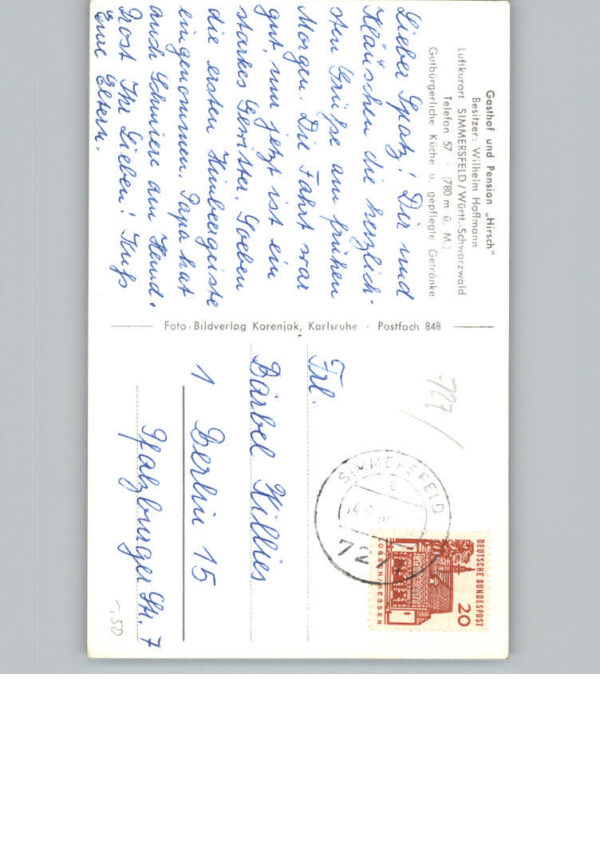 Gasthof und Pension „Hirsch"
Besitzer: Wilhelm Hoffmann
Luftkurort SIMMERSFELD/Württ.-Schwarzwald
Telefon 57 · (780 m ü. M.)
Gutbürgerliche Küche u. gepflegte Getränke
Lieber Spatz! Dir und
Kläuschen die herzlich-
sten Grüße am frühen
Morgen. Die Fahrt war
gut, nur jetzt ist ein
starkes Gewitter. Soeben
die ersten Himbeergeiste
eingenommen. Papa hat
auch Schmiere am Hemd.
Prost Ihr Lieben! Kuß
Eure Eltern.
Foto-Bildverlag Korenjak, Karlsruhe · Postfach 848
Frl.
Bärbel Killies
1 Berlin 15
Pfalzburger Str. 7
-727/
SIMMERSFELD
a
DEUTSCHE BUNDESPOST
20
LORSCH HESSEN
-,50